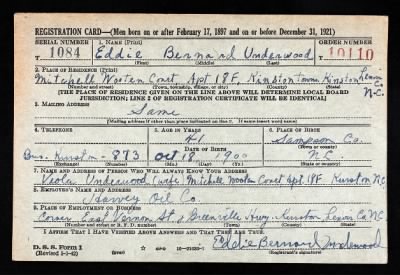 REGISTRATION CARD—(Men born on or after February 17, 1897 and on or before December 31, 1921)
SERIAL NUMBER 1. NAME (Print) ORDER NUMBER
T 1084 Eddie Bernard Underwood T 10110
(First) (Middle) (Last)
2. PLACE OF RESIDENCE (Print)
Mitchell Wooten Court, Apt 18F, Kinston Kinston Lenoir Co. N-C.
(Number and street) (Town, township, village, or city) (County) (State)
[THE PLACE OF RESIDENCE GIVEN ON THE LINE ABOVE WILL DETERMINE LOCAL BOARD
JURISDICTION; LINE 2 OF REGISTRATION CERTIFICATE WILL BE IDENTICAL]
3. MAILING ADDRESS
Same
[Mailing address if other than place indicated on line 2. If same insert word same]
4. TELEPHONE 5. AGE IN YEARS 6. PLACE OF BIRTH
41 Sampson Co.
DATE OF BIRTH (Town or county)
Bus. Kinston - 873 Oct 18 1900 N.C.
(Exchange) (Number) (Mo.) (Day) (Yr.) (State or country)
7. NAME AND ADDRESS OF PERSON WHO WILL ALWAYS KNOW YOUR ADDRESS
Viola Underwood (wife) Mitchell Wooten Court Apt. 18F Kinston N.C.
8. EMPLOYER'S NAME AND ADDRESS
Harvey Oil Co.
9. PLACE OF EMPLOYMENT OR BUSINESS
Corner East Vernon St & Greenville Hwy. Kinston Lenoir Co. N.C.
(Number and street or R. F. D. number) (Town) (County) (State)
I AFFIRM THAT I HAVE VERIFIED ABOVE ANSWERS AND THAT THEY ARE TRUE.
D. S. S. Form 1 Eddie Bernard Underwood
(Revised 1-1-42) (over) (Registrant's signature)